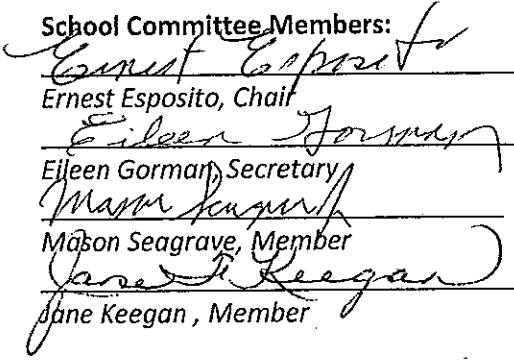 School Committee Members:
Ernest Esposito
Ernest Esposito, Chair
Eileen Gorman
Eileen Gorman, Secretary
Mason Seagrave
Mason Seagrave, Member
Jane F Keegan
Jane Keegan , Member